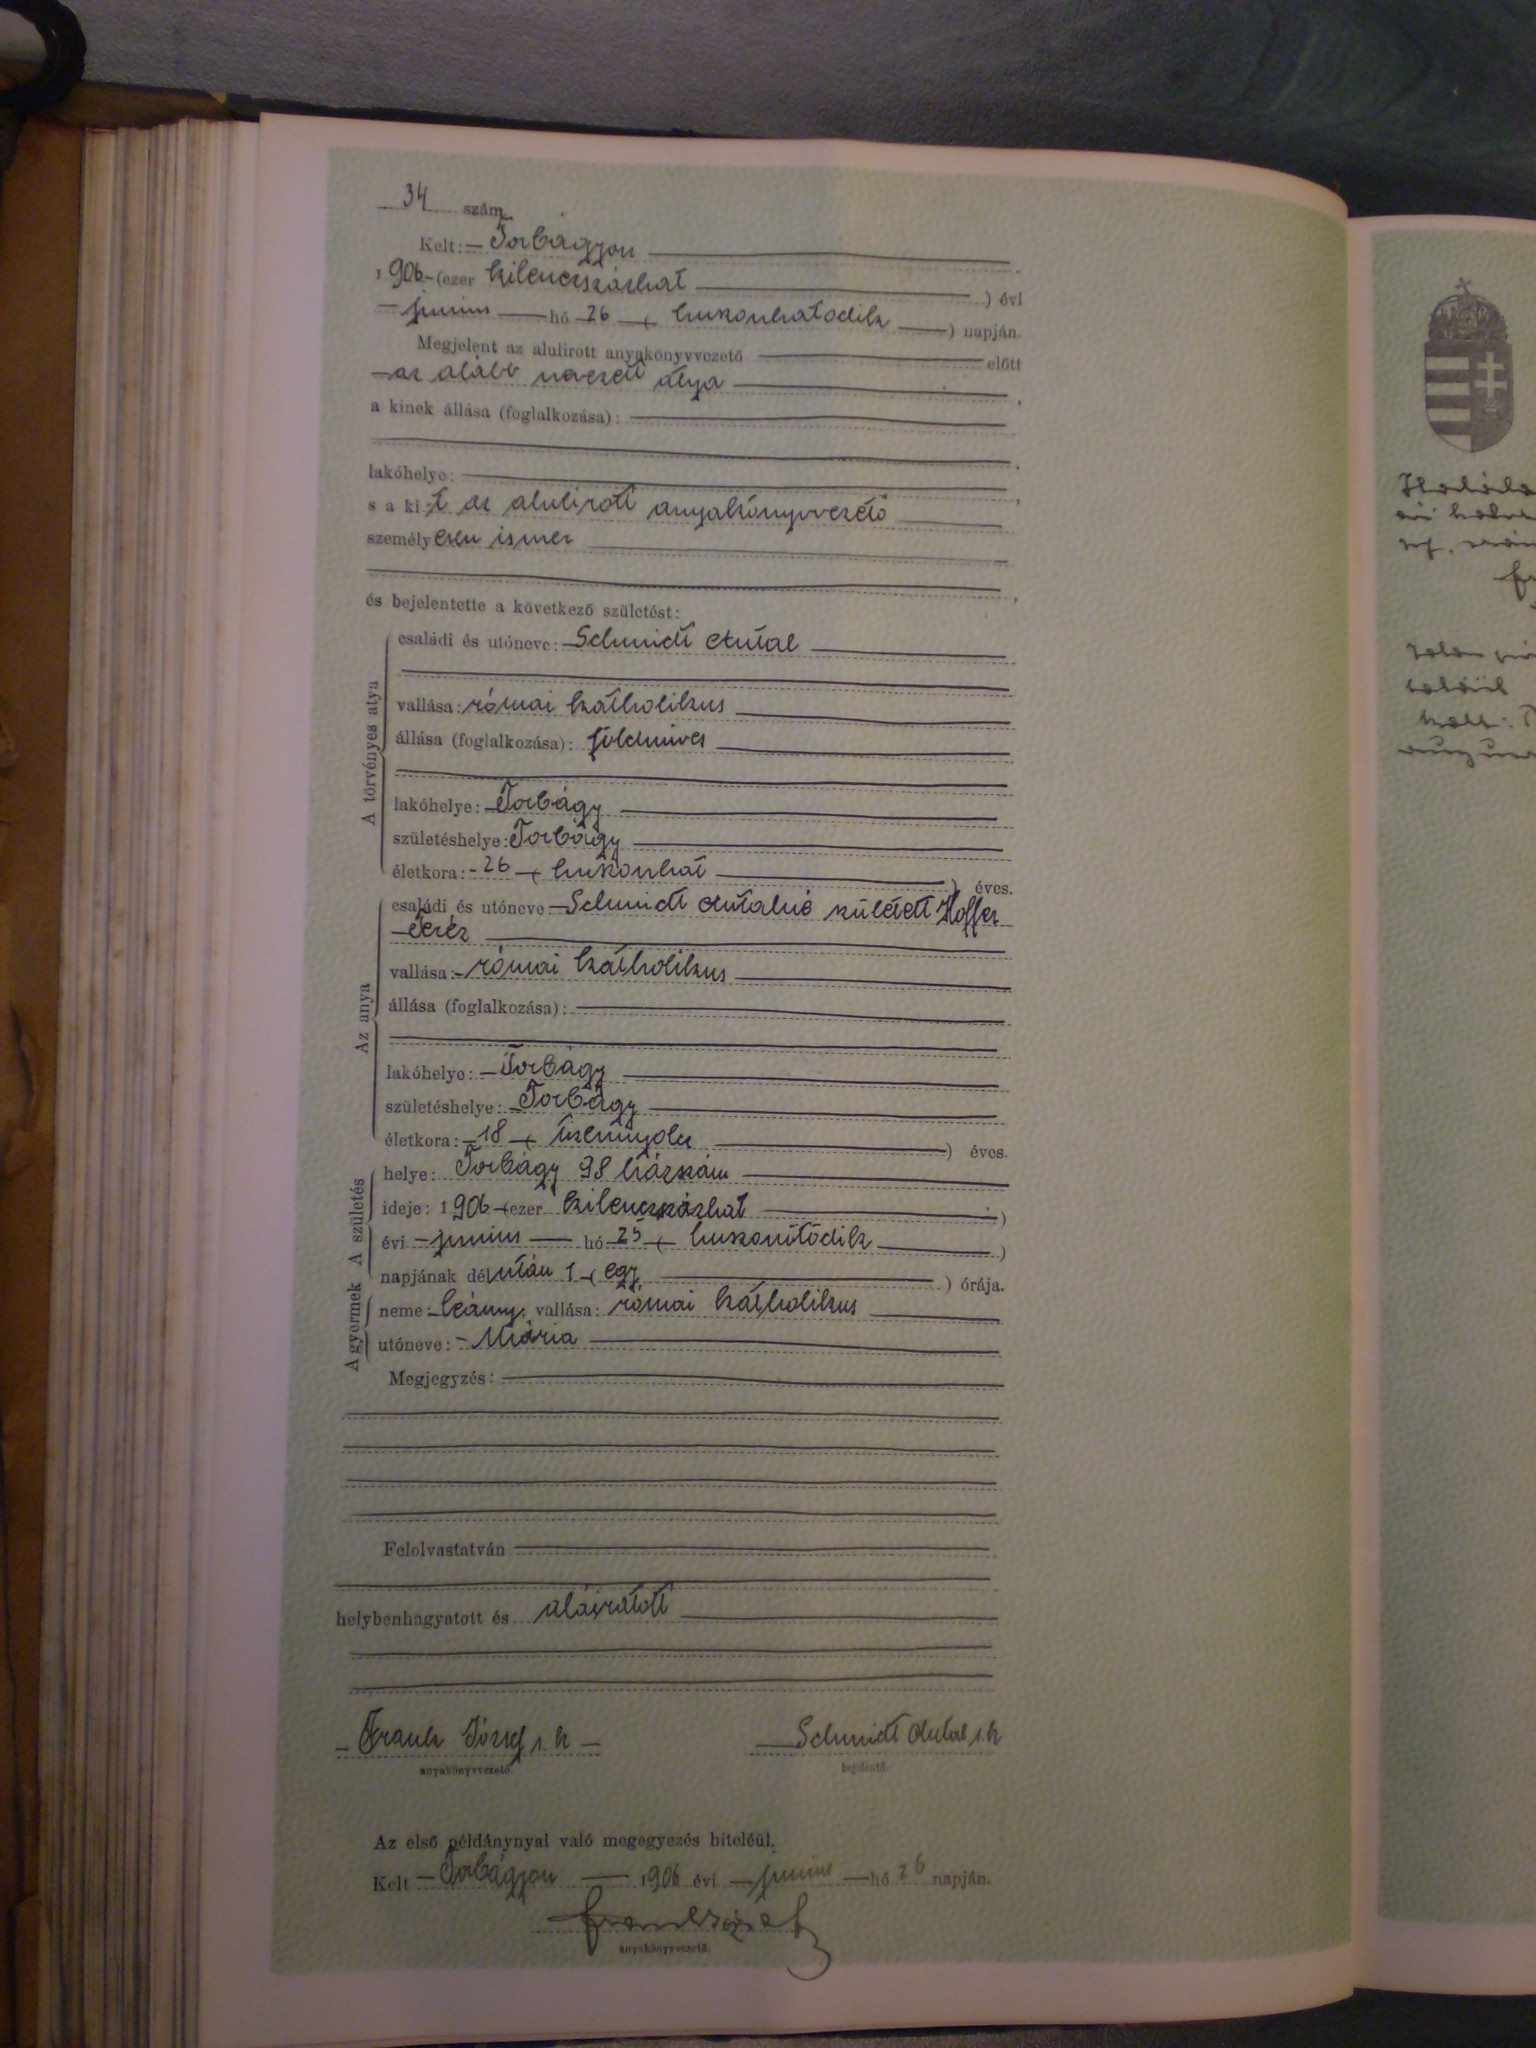 34 szám
Kelt: Torbágyon
1906 (ezer kilencszázhat ) évi
junius hó 26 ( huszonhatodik ) napján.
Megjelent az alulirott anyakönyvvezető előtt
az alább nevezett atya ,
a kinek állása (foglalkozása):
lakóhelye: ,
s a kit az alulirott anyakönyvvezető
személyesen ismer
,
és bejelentette a következő születést:
A törvényes atya
családi és utóneve: Schmidt Antal
vallása: római katholikus
állása (foglalkozása): földmives
lakóhelye: Torbágy
születéshelye: Torbágy
életkora: 26 ( huszonhat ) éves.
Az anya
családi és utóneve Schmidt Antalné született Hoffer
Teréz
vallása: római katholikus
állása (foglalkozása):
lakóhelye: Torbágy
születéshelye: Torbágy
életkora: 18 ( tizennyolcz ) éves.
A születés
helye: Torbágy 98 házszám
ideje: 1906 (ezer kilenczszázhat )
évi junius hó 25 ( huszonötödik )
napjának délután 1 ( egy ) órája.
A gyermek
neme: leány; vallása: római katholikus
utóneve: Mária
Megjegyzés:
Felolvastatván
helybenhagyatott és aláiratott
Frank József s. k. Schmidt Antal s. k.
anyakönyvvezető. bejelentő.
Az első példánynyal való megegyezés hiteléül.
Kelt Torbágyon 1906 évi junius hó 26 napján.
Frank József
anyakönyvvezető.